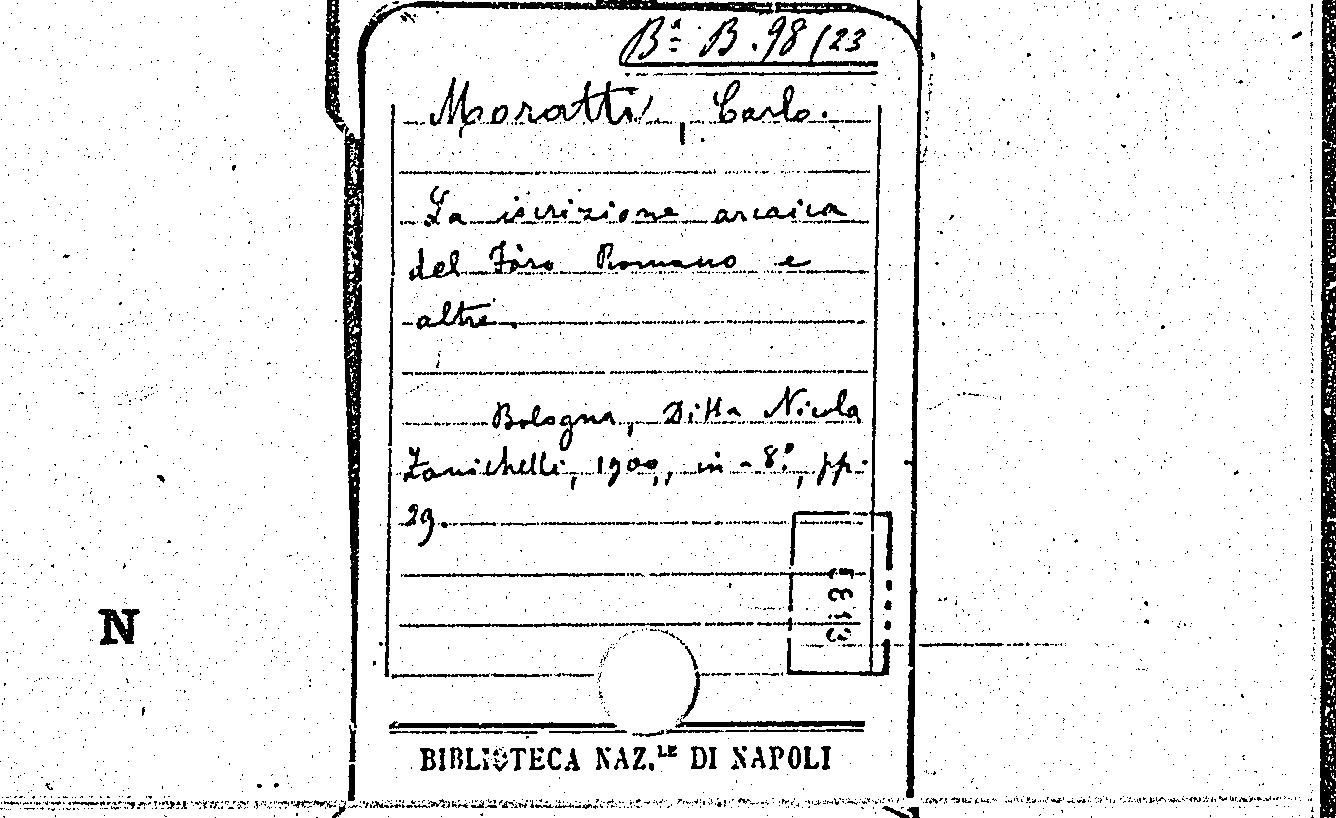 Bª B. 98/23
Moratti, Carlo.
La iscrizione arcaica
del Fòro Romano e
altre.
Bologna, Ditta Nicola
Zanichelli, 1900, in-8º, pp.
29.
N
BIBLIOTECA NAZ.LE DI NAPOLI